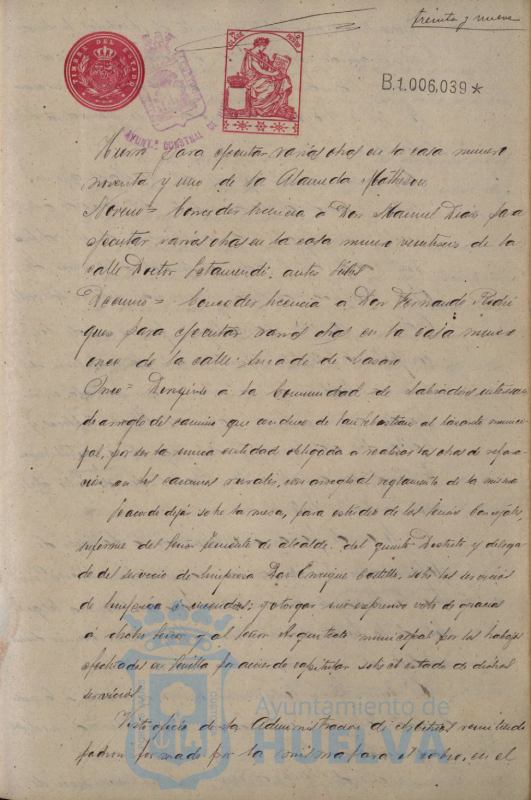 treinta y nueve
TIMBRE DEL ESTADO
B.1.006,039*
AYUNTº CONSTITU
para ejecutar varias obras en la casa numero
noventa y uno de la Alameda
Noveno= Conceder licencia á Don Manuel Diaz para
ejecutar varias obras en la casa numero de la
calle Doctor Letamendi, antes
Decimo= Conceder licencia á Don Fernando Rodri
guez para ejecutar varias obras en la casa numero
once de la calle
Once= Dirigirse á la Comunidad de Labradores
de arreglo del camino que conduce de San Sebastian al
pal, por ser la unica entidad obligada á realizar las obras de repara
cion en los caminos rurales, con arreglo al reglamento de la misma
Se acordó dejar sobre la mesa, para estudio de los Señores Concejales
informe del Señor Teniente de alcalde del quinto Distrito y delega
do del servicio de limpieza Don Enrique sobre los servicios
de limpieza é incendios; y otorgar un expresivo voto de gracias
á dicho Señor y al Señor Arquitecto municipal por los trabajos
efectuados en Sevilla por acuerdo capitular sobre el estado de dichos
servicios.
Visto oficio de la Administracion de Arbitrios remitiendo
padron formado por la misma para el cobro, en el
Ayuntamiento de
HUELVA